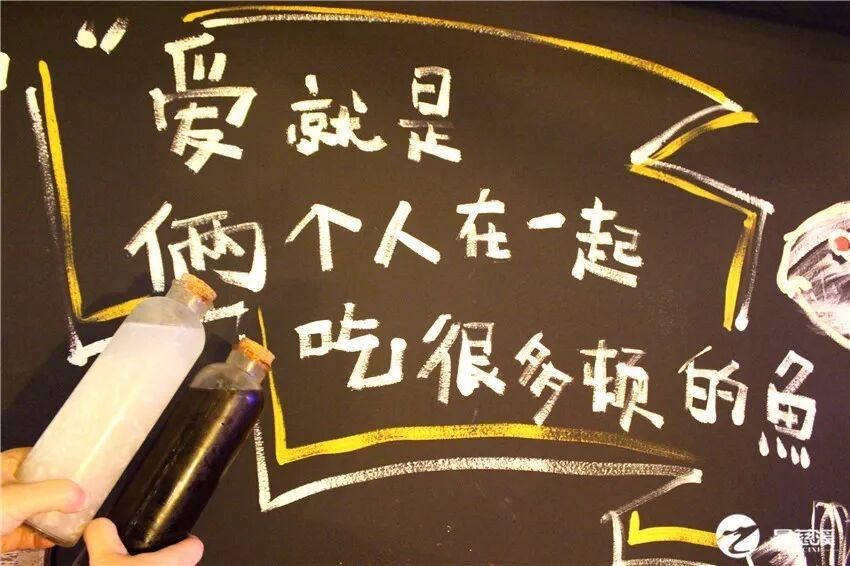 “爱就是
俩个人在一起
吃很多顿的魚